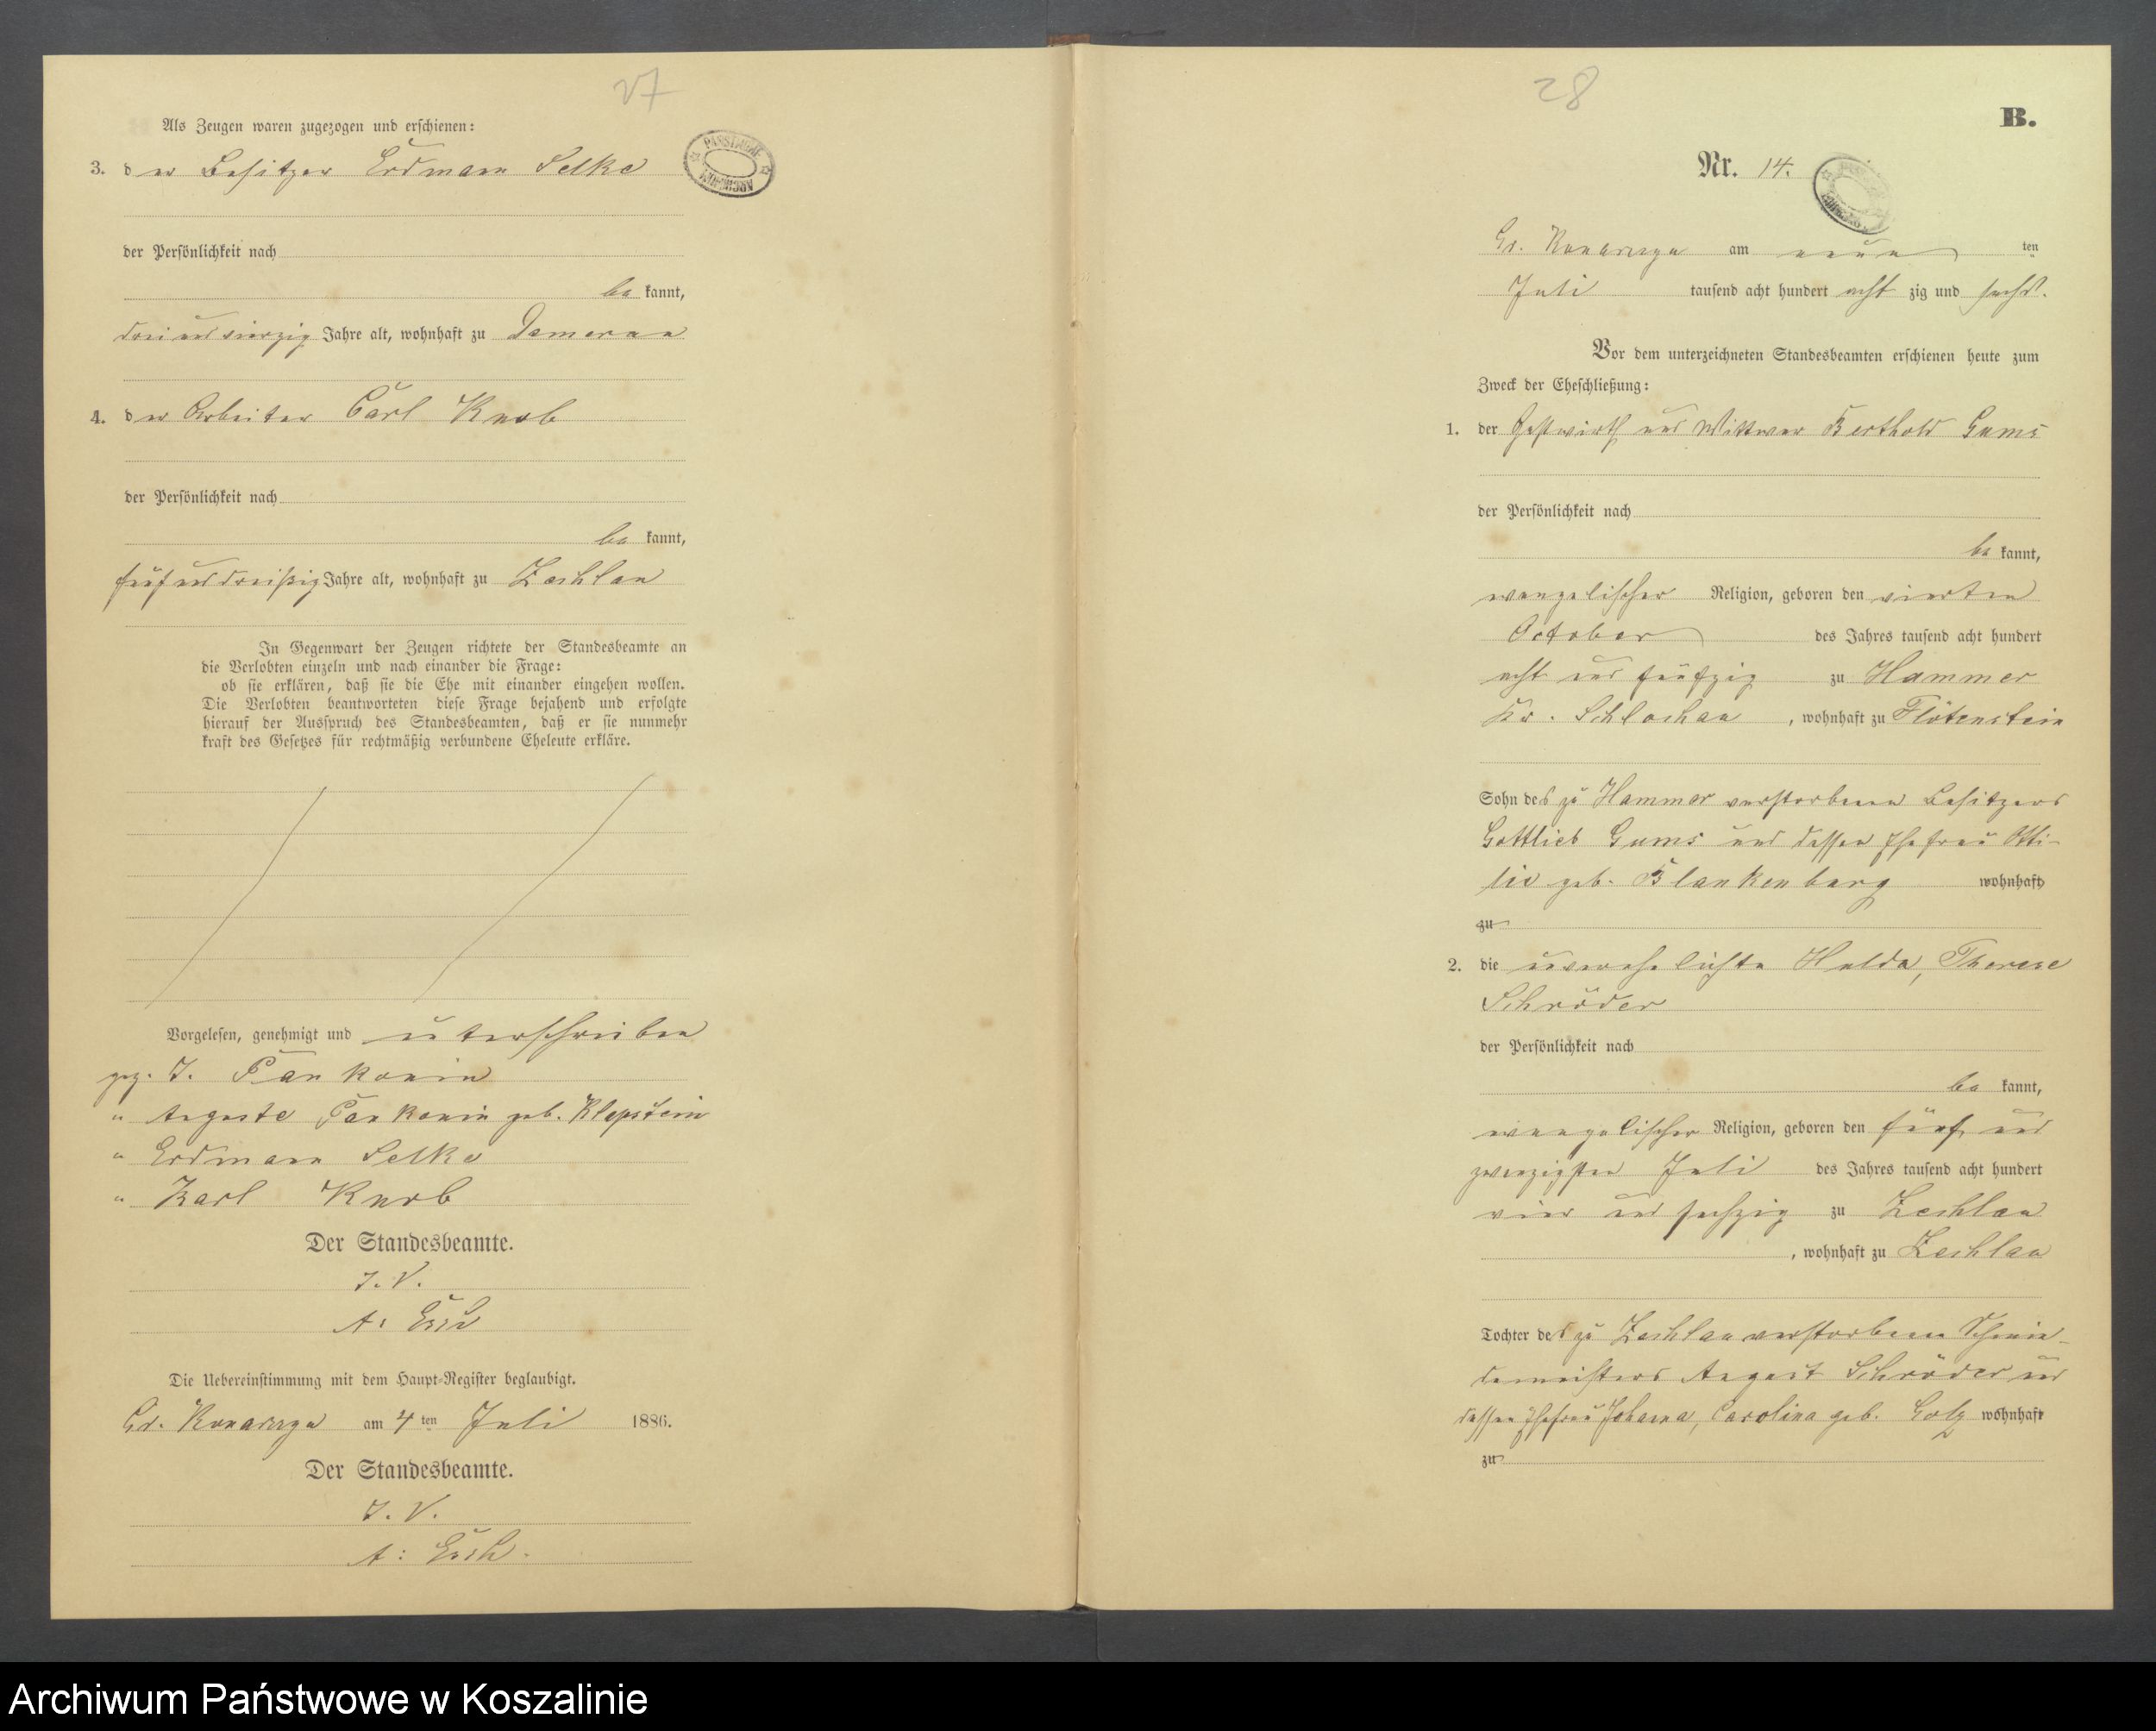 27
Als Zeugen waren zugezogen und erschienen:
3. der Besitzer Erdmann Selke
der Persönlichkeit nach
be kannt,
drei und vierzig Jahre alt, wohnhaft zu Damerau
4. der Arbeiter Carl Knob
der Persönlichkeit nach
be kannt,
fünf und dreißig Jahre alt, wohnhaft zu Zechlau
In Gegenwart der Zeugen richtete der Standesbeamte an
die Verlobten einzeln und nach einander die Frage:
ob sie erklären, daß sie die Ehe mit einander eingehen wollen.
Die Verlobten beantworteten diese Frage bejahend und erfolgte
hierauf der Ausspruch des Standesbeamten, daß er sie nunmehr
kraft des Gesetzes für rechtmäßig verbundene Eheleute erkläre.
Vorgelesen, genehmigt und unterschrieben
gez. J. Pankonin
" Auguste Pankonin geb. Klepstein
" Erdmann Selke
" Karl Knob
Der Standesbeamte.
J. V.
A: Esch
Die Uebereinstimmung mit dem Haupt-Register beglaubigt.
Gr. Konarczyn am 4 ten Juli 1886.
Der Standesbeamte.
J. V.
A: Esch.
28
B.
Nr. 14.
Gr. Konarczyn am neun ten
Juli tausend acht hundert acht zig und sechs.
Vor dem unterzeichneten Standesbeamten erschienen heute zum
Zweck der Eheschließung:
1. der Gastwirth und Wittwer Berthold Gums
der Persönlichkeit nach
be kannt,
evangelischer Religion, geboren den vierten
October des Jahres tausend acht hundert
acht und fünfzig zu Hammer
Kr. Schlochau, wohnhaft zu Flötenstein
Sohn des zu Hammer verstorbenen Besitzers
Gottlieb Gums und dessen Ehefrau Otti-
lie geb. Blankenburg wohnhaft
zu
2. die unverehelichte Hulda, Therese
Schröder
der Persönlichkeit nach
be kannt,
evangelischer Religion, geboren den fünf und
zwanzigsten Juli des Jahres tausend acht hundert
vier und sechzig zu Zechlau
, wohnhaft zu Zechlau
Tochter des zu Zechlau verstorbenen Schmie-
demeisters August Schröder und
dessen Ehefrau Johanna, Carolina geb. Golz wohnhaft
zu
Archiwum Państwowe w Koszalinie